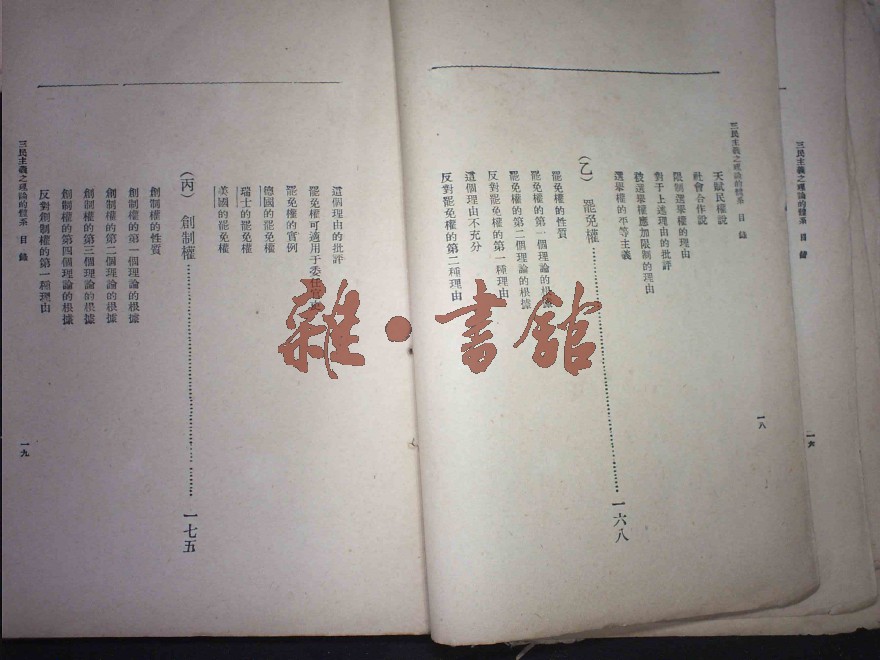 三民主義之理論的體系 目錄
一六
三民主義之理論的體系 目錄
天賦民權說
社會合作說
限制選舉權的理由
對于上述理由的批評
被選舉權應加限制的理由
選舉權的平等主義
(乙) 罷免權……………………一六八
罷免權的性質
罷免權的第一個理論的根據
罷免權的第二個理論的根據
反對罷免權的第一種理由
這個理由不充分
反對罷免權的第二種理由
一八
這個理由的批評
罷免權可適用于委任官吏
罷免權的實例
德國的罷免權
瑞士的罷免權
美國的罷免權
(丙) 創制權……………………一七五
創制權的性質
創制權的第一個理論的根據
創制權的第二個理論的根據
創制權的第三個理論的根據
創制權的第四個理論的根據
反對創制權的第一種理由
三民主義之理論的體系 目錄
一九
雜·書館